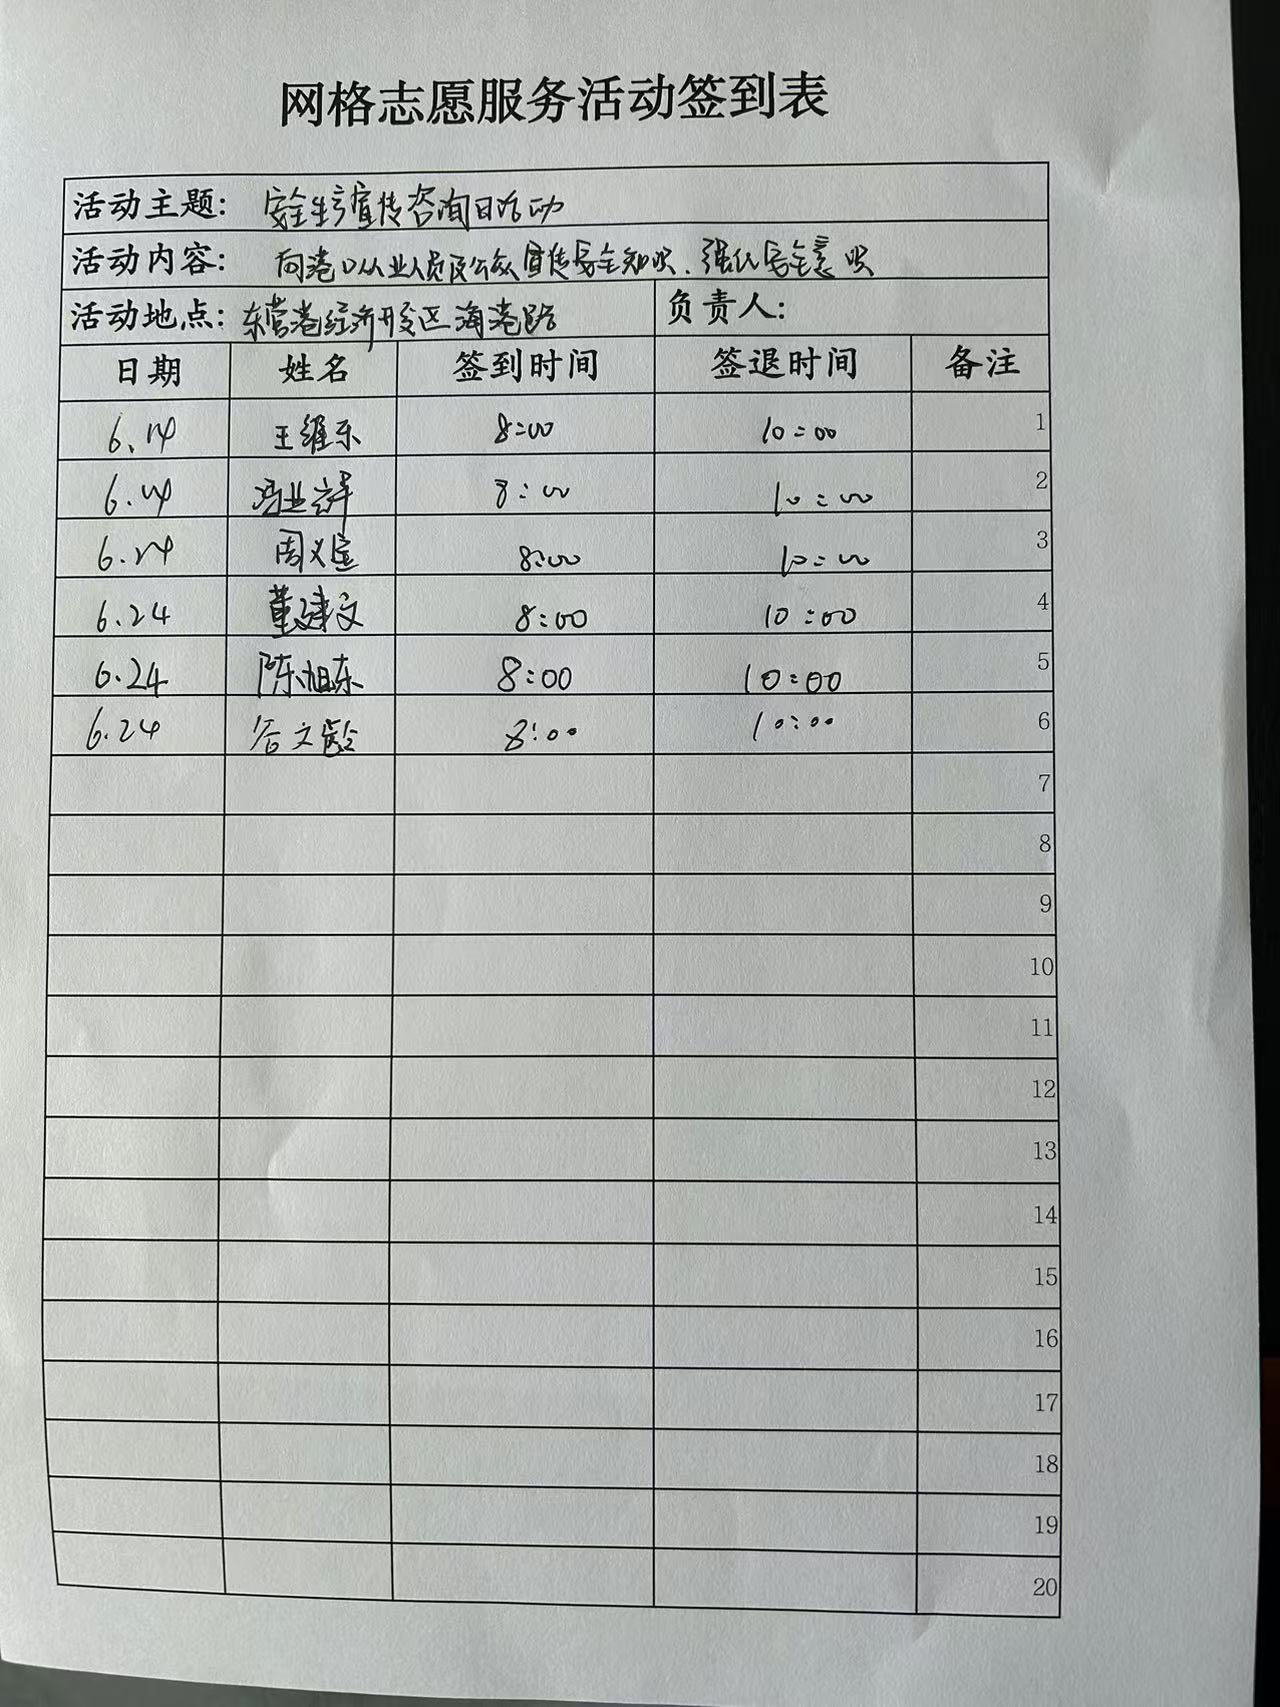 网格志愿服务活动签到表
活动主题: 安全生产宣传咨询日活动
活动内容: 向港口从业人员及公众宣传安全知识、强化安全意识
活动地点: 东营港经济开发区海港路 负责人:
日期 姓名 签到时间 签退时间 备注
6.24 王维东 8:00 10:00 1
6.24 冯业祥 8:00 10:00 2
6.24 周义 8:00 10:00 3
6.24 董建文 8:00 10:00 4
6.24 陈旭东 8:00 10:00 5
6.24 谷文龄 8:00 10:00 6
7
8
9
10
11
12
13
14
15
16
17
18
19
20